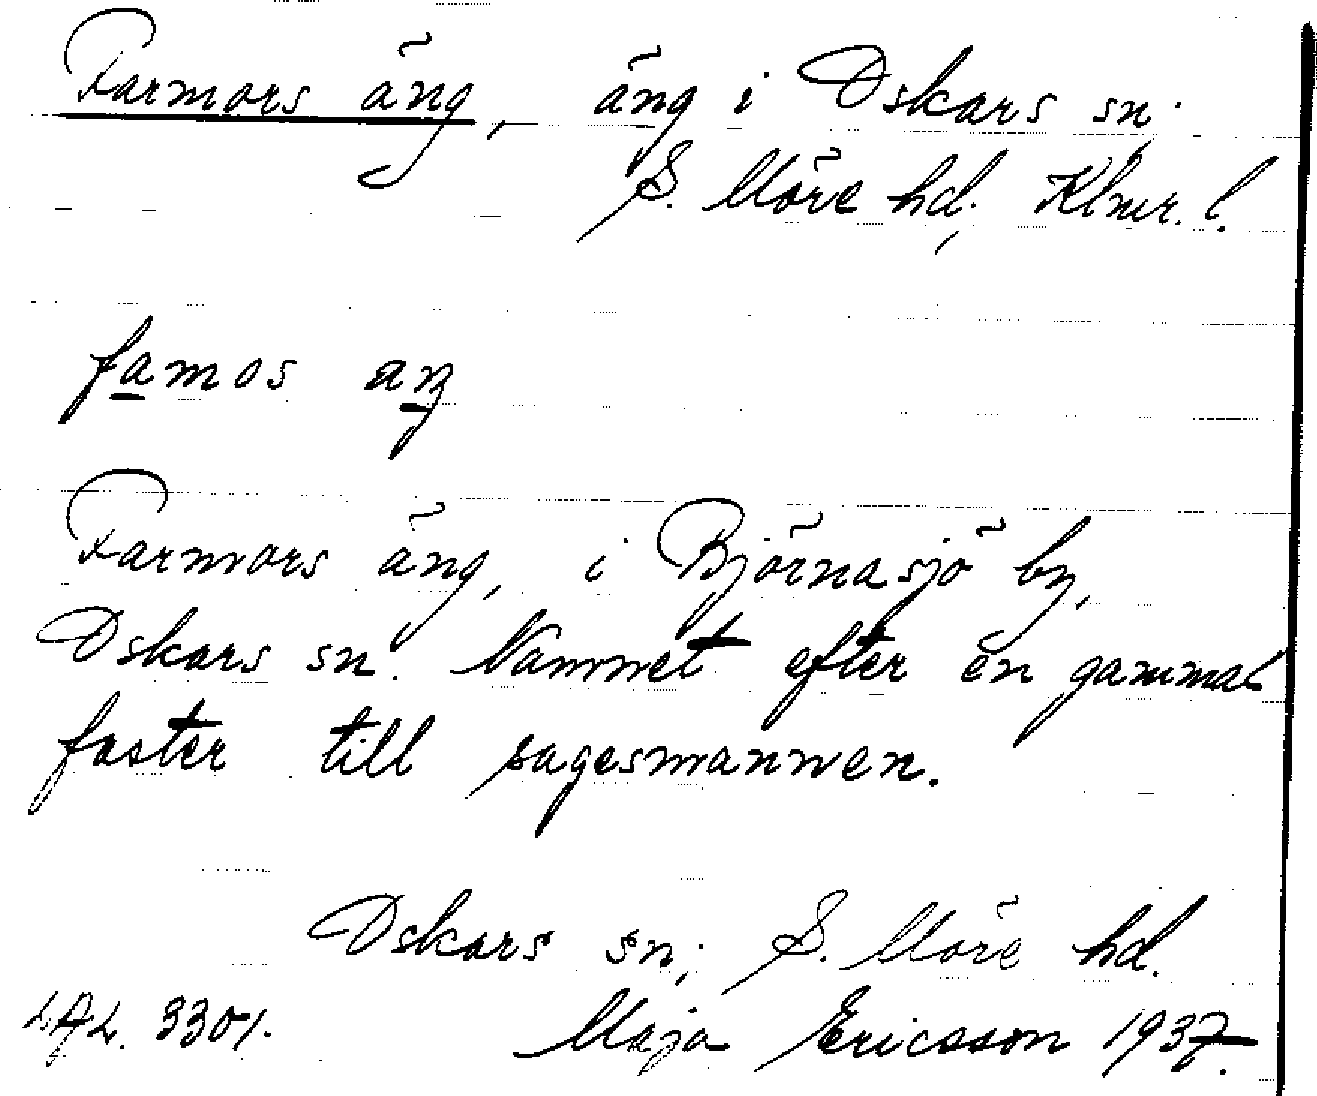 Farmors äng, äng i Oskars sn;
S. Möre hd, Klmr. l.
famos aŋ
Farmors äng, i Björnasjö by,
Oskars sn. Namnet efter en gammal
faster till sagesmannen.
Oskars sn; S. Möre hd.
LAL. 3301. Maja Ericsson 1937.